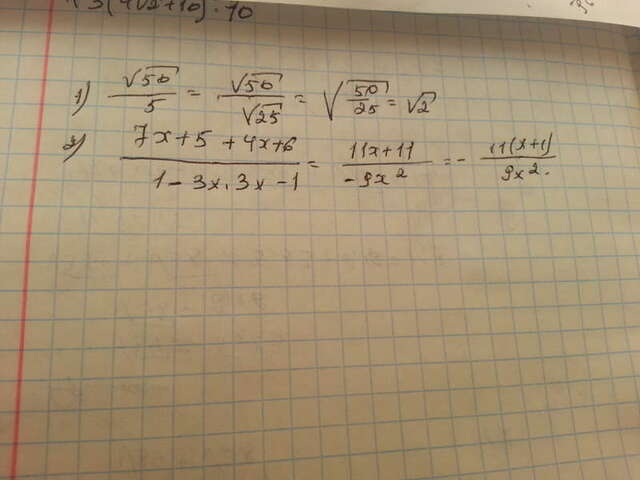 √3(4√2+10)·10
1) √50/5 = √50/√25 = √(50/25) = √2
2) (7x+5+4x+6)/(1-3x·3x-1) = (11x+11)/(-9x²) = -11(x+1)/(9x²).